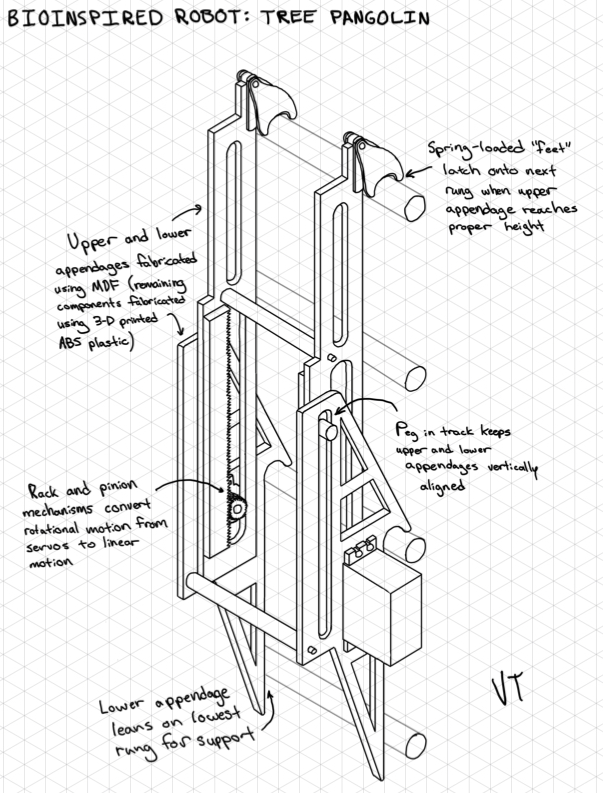 BIOINSPIRED ROBOT: TREE PANGOLIN
Spring-loaded "feet"
latch onto next
rung when upper
appendage reaches
proper height
Upper and lower
appendages fabricated
using MDF (remaining
components fabricated
using 3-D printed
ABS plastic)
Peg in track keeps
upper and lower
appendages vertically
aligned
Rack and pinion
mechanisms convert
rotational motion from
servos to linear
motion
Lower appendage
leans on lowest
rung for support
VT